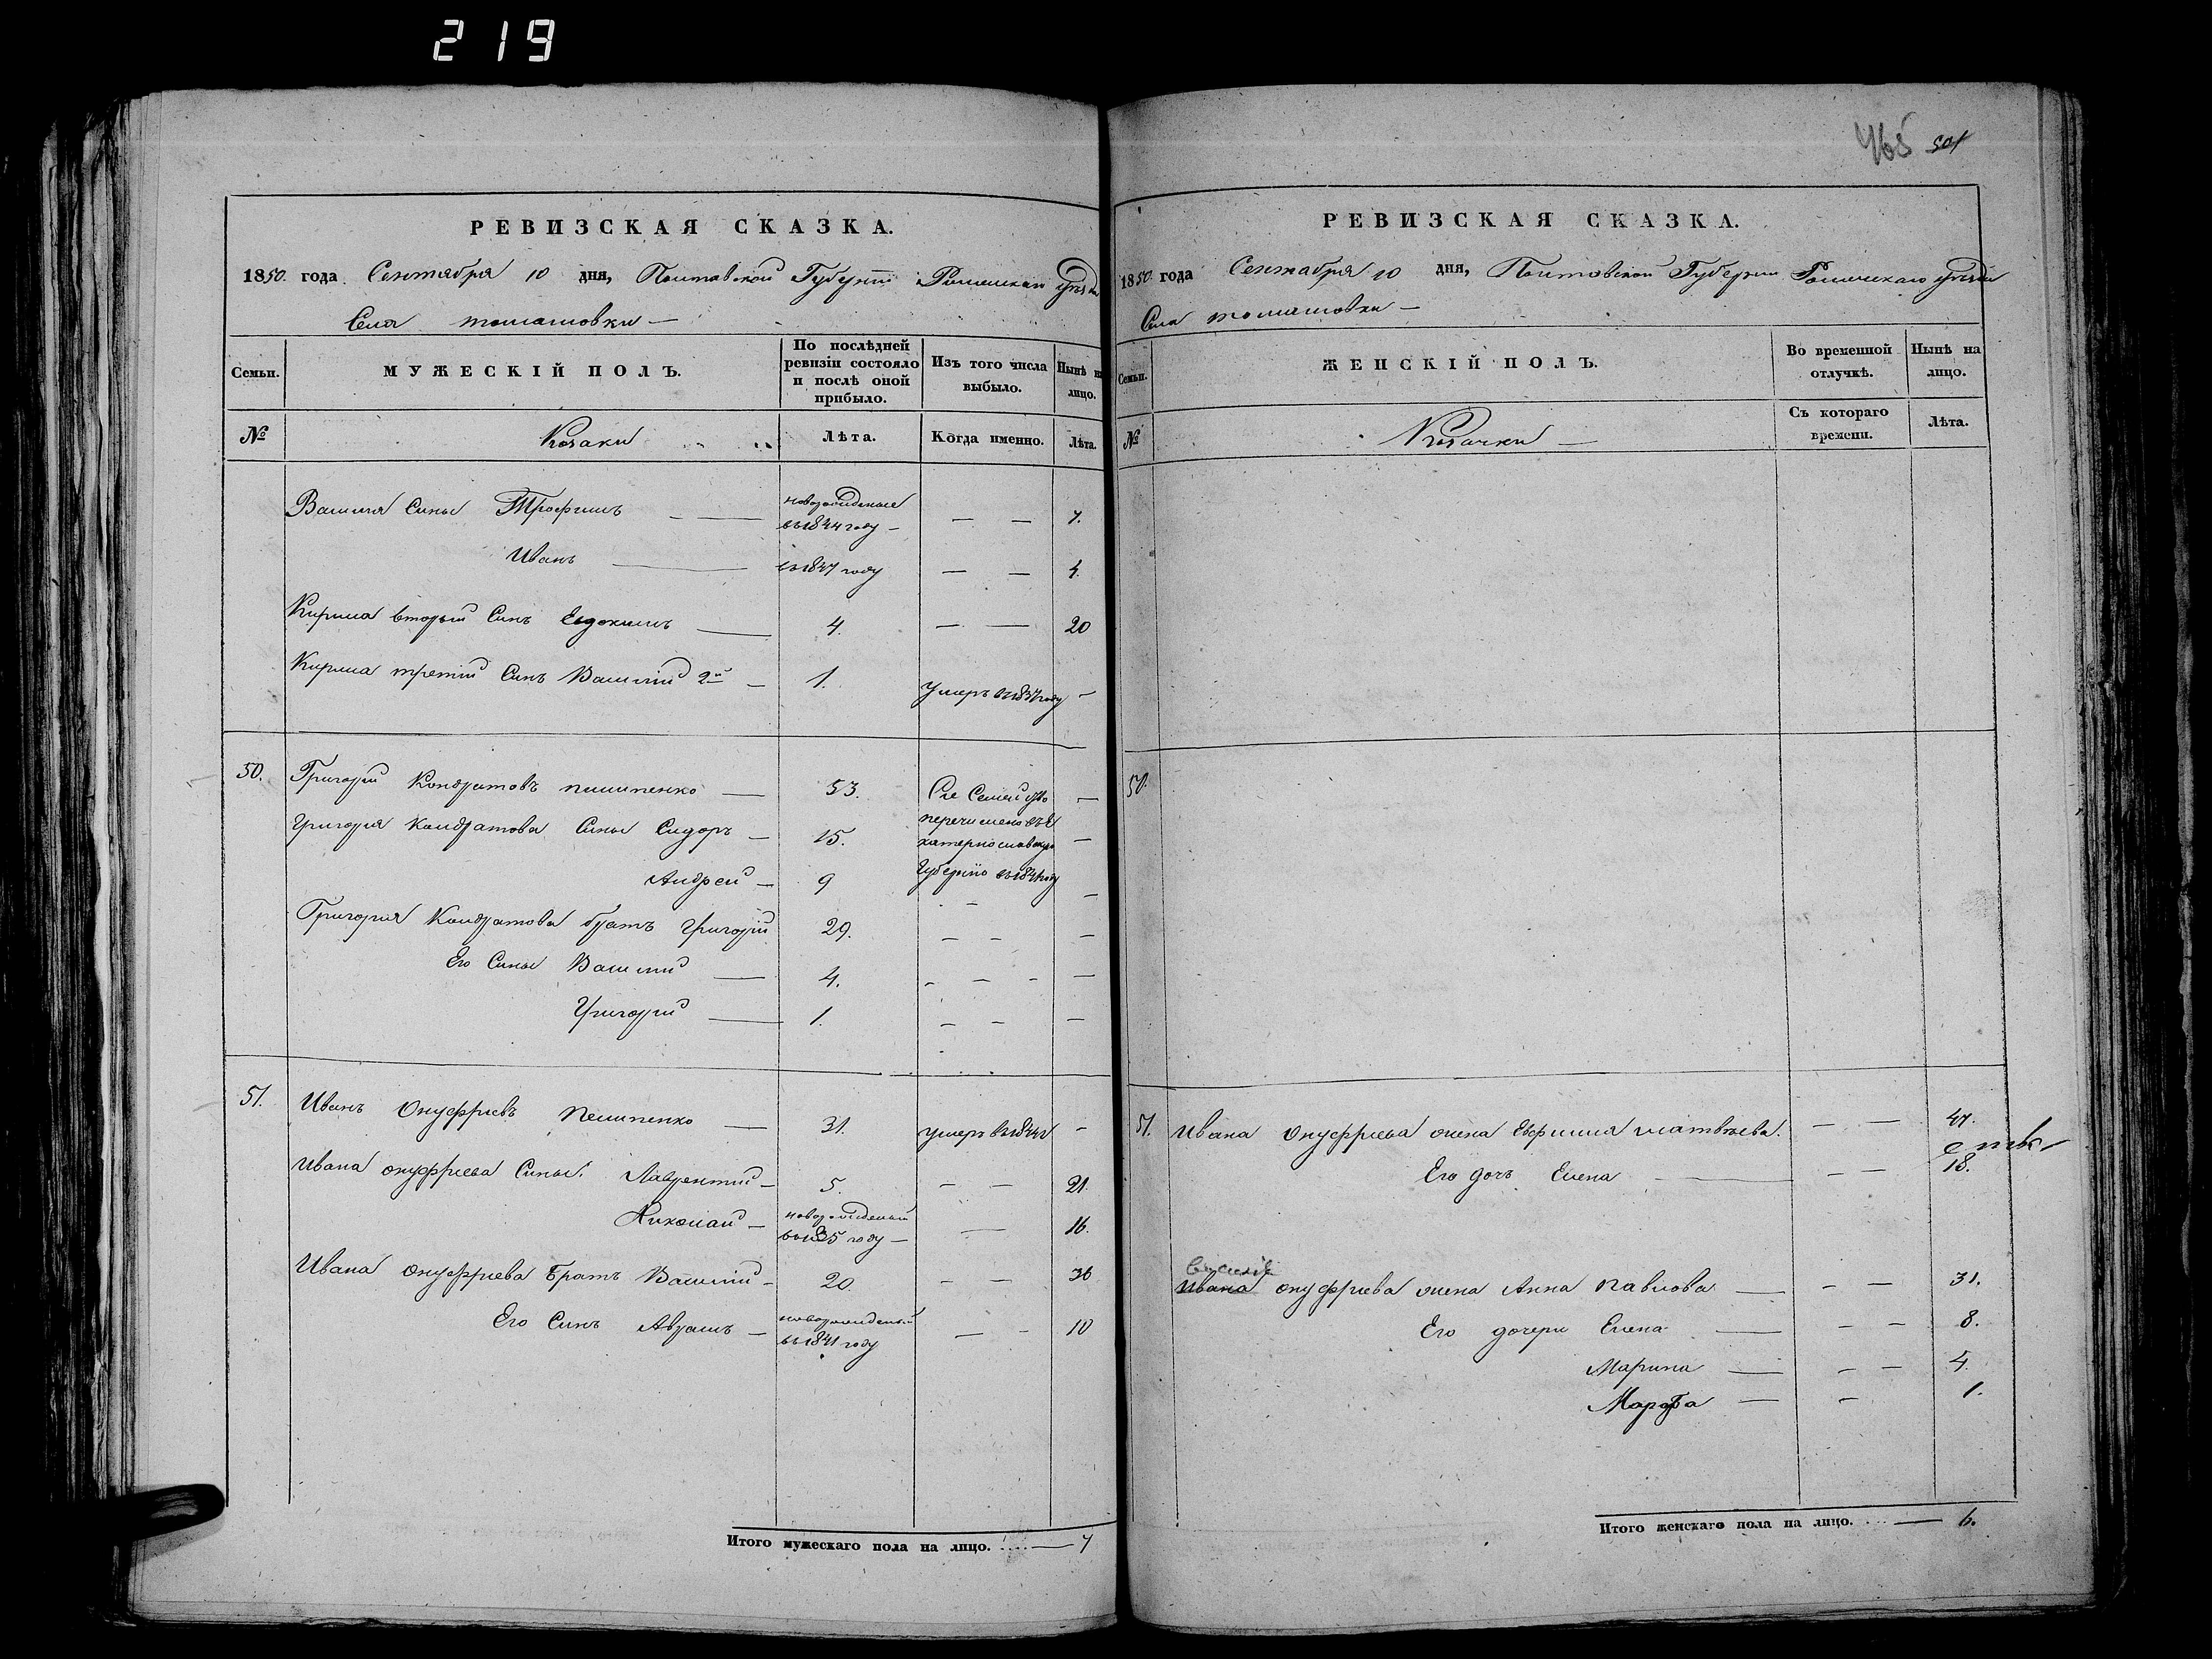 219
РЕВИЗСКАЯ СКАЗКА.
1850. года Сентября 10 дня, Полтавской Губерніи Роменскаго уезда
Села томашовки —
Семьи. МУЖЕСКІЙ ПОЛЪ. По послѣдней ревизіи состояло и послѣ оной прибыло. Изъ того числа выбыло. Нынѣ на лицо.
№ Козаки Лѣта. Когда именно. Лѣта.
Василия Сины Трофимъ — новорожденые въ 1844 году — — — 7.
Иванъ — въ 1847 году — — 4.
Кирила вторый Синъ Евдокимъ — 4. — — 20
Кирила третій Синъ Василій 2й — 1. Умеръ въ 1837 году —
50. Григорій Кондратовъ пилипенко — 53. Сие Семейство —
перечислено въ Е
Григория Кондратова Сины Сидоръ — 15. катеринославскую —
Андрей — 9 Губернію въ 1841 году —
Григория Кондратова братъ Григорій 29. — — —
Его Сины Василий — 4. — — — —
Григорий — 1. — — —
51. Иванъ Онуфриевъ Пелипенко — 31. умеръ въ 1844 г —
Ивана онуфриева Сины: Лаврентий — 5. — — 21.
Николай — новорожденый въ 1835 году — — 16.
Ивана Онуфриева Братъ Василий — 20. — — 36
Его Синъ Аврамъ — новорожденый въ 1841 году — — 10
Итого мужескаго пола на лицо. — 7
465 501
РЕВИЗСКАЯ СКАЗКА.
1850. года Сентября 10 дня, Полтавской Губернии Роменскаго уезда
Села томашовки —
Семьи. ЖЕНСКІЙ ПОЛЪ. Во временной отлучкѣ. Нынѣ на лицо.
№ Козачки — Съ котораго времени. Лѣта.
50.
51. Ивана Онуфриева жена Евфимия матвѣева. — — 47.
Его дочъ Елена — — — 18.
Василия
Ивана онуфриева жена Анна павлова — — — 31.
Его дочери Елена — — — 8.
Марина — — — 4.
Марфа — — 1.
Итого женскаго пола на лицо. — 6.